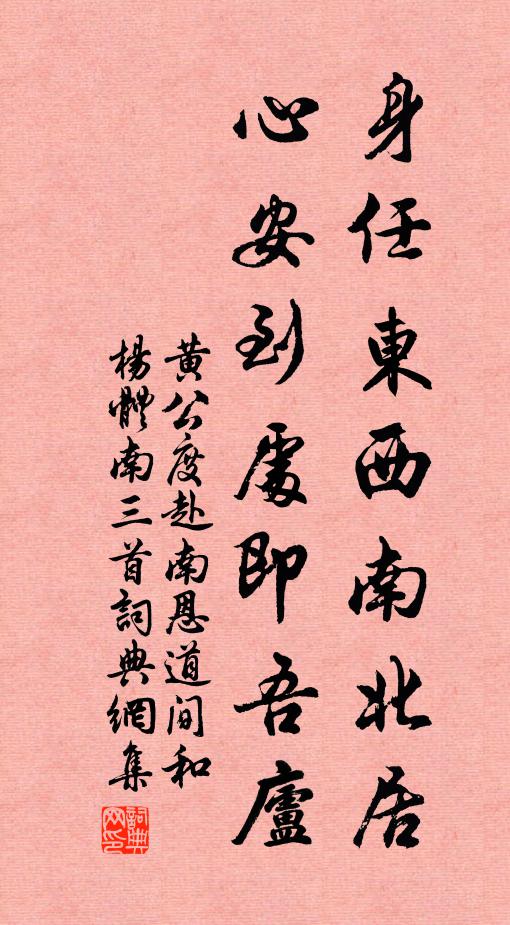 身任東西南北居
心安到處即吾廬
黄公度赴南恩道间和
楊體南三首詞典網集
詞典网印